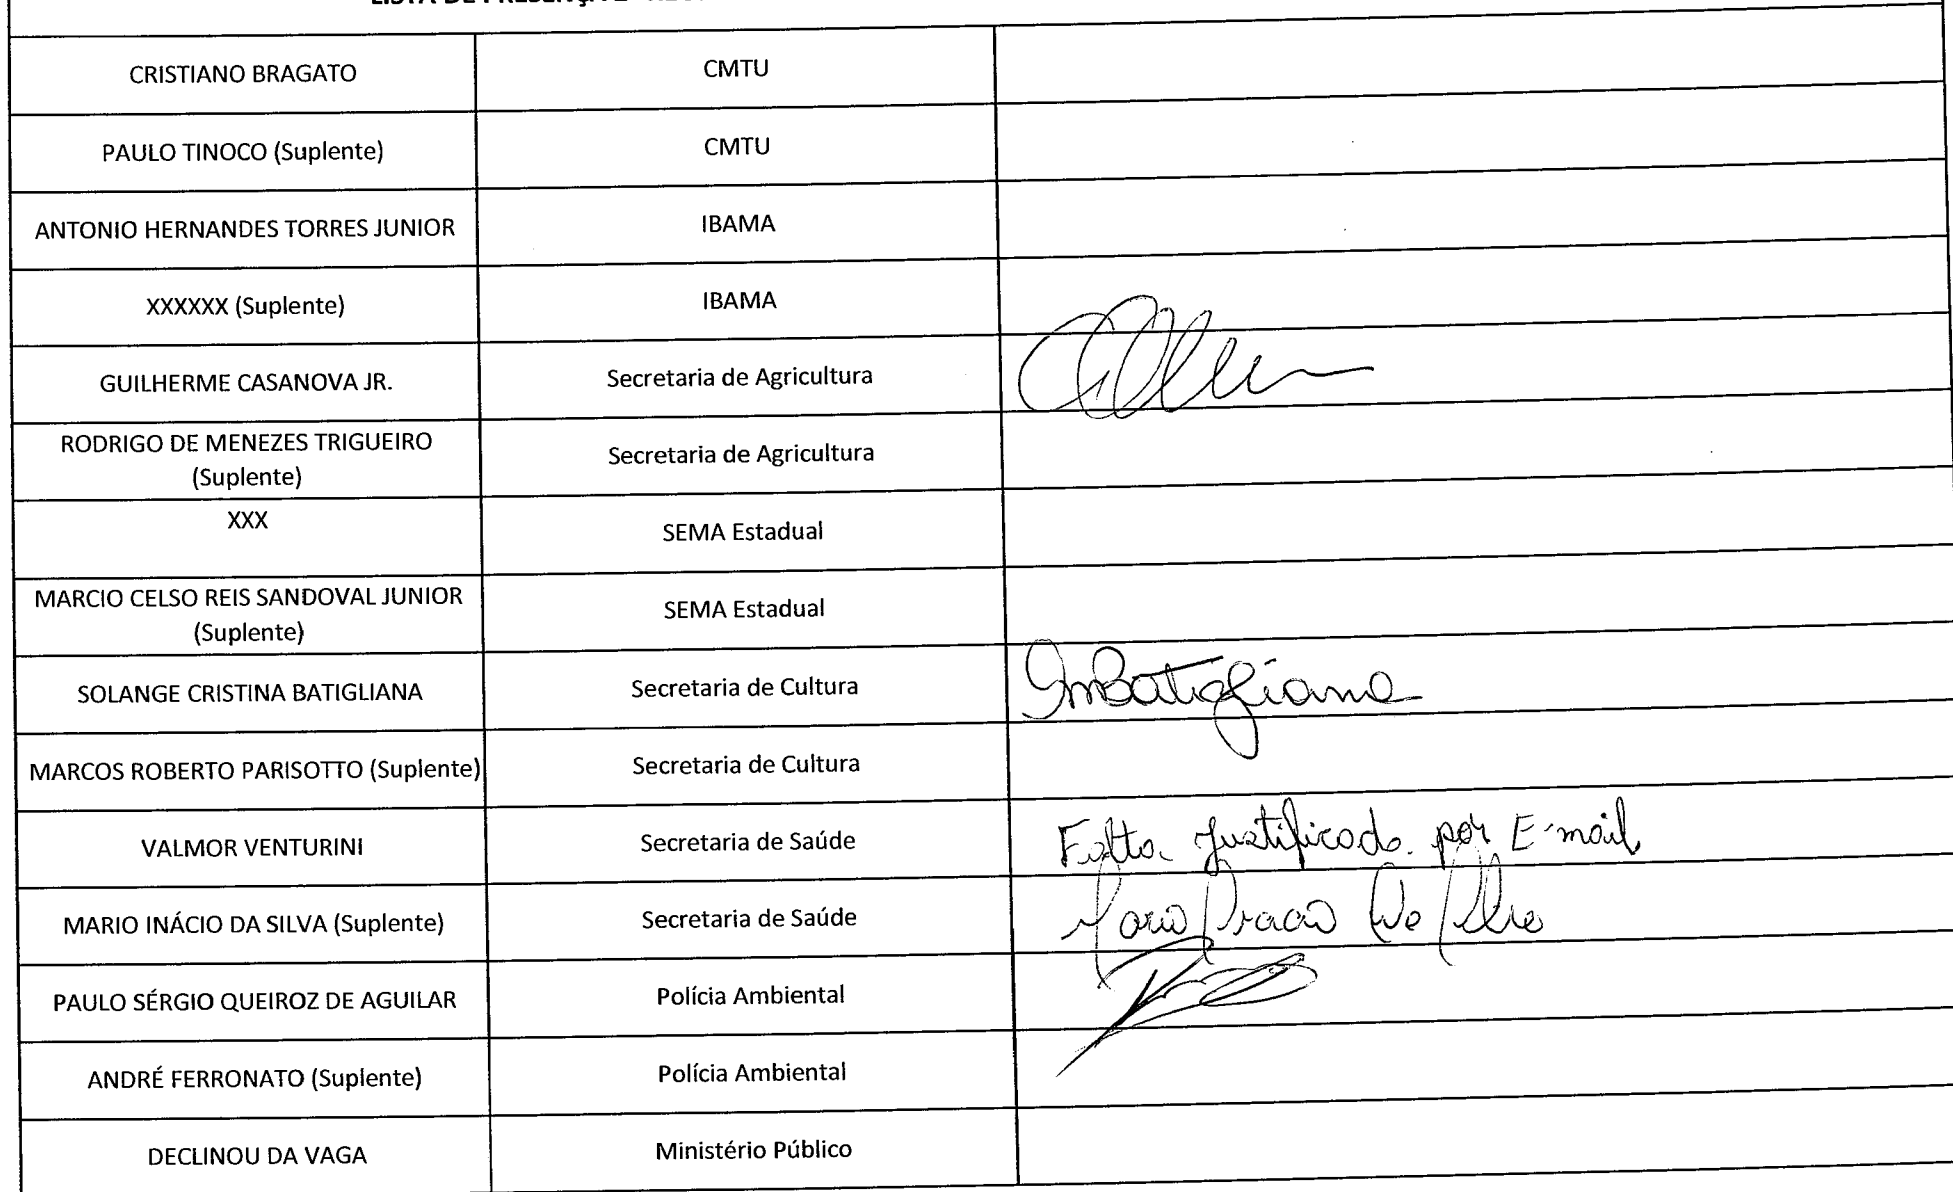 CRISTIANO BRAGATO CMTU
PAULO TINOCO (Suplente) CMTU
ANTONIO HERNANDES TORRES JUNIOR IBAMA
XXXXXX (Suplente) IBAMA
GUILHERME CASANOVA JR. Secretaria de Agricultura
RODRIGO DE MENEZES TRIGUEIRO
(Suplente) Secretaria de Agricultura
XXX SEMA Estadual
MARCIO CELSO REIS SANDOVAL JUNIOR
(Suplente) SEMA Estadual
SOLANGE CRISTINA BATIGLIANA Secretaria de Cultura Batigliana
MARCOS ROBERTO PARISOTTO (Suplente) Secretaria de Cultura
VALMOR VENTURINI Secretaria de Saúde Falta justificada por E-mail
MARIO INÁCIO DA SILVA (Suplente) Secretaria de Saúde
PAULO SÉRGIO QUEIROZ DE AGUILAR Polícia Ambiental
ANDRÉ FERRONATO (Suplente) Polícia Ambiental
DECLINOU DA VAGA Ministério Público